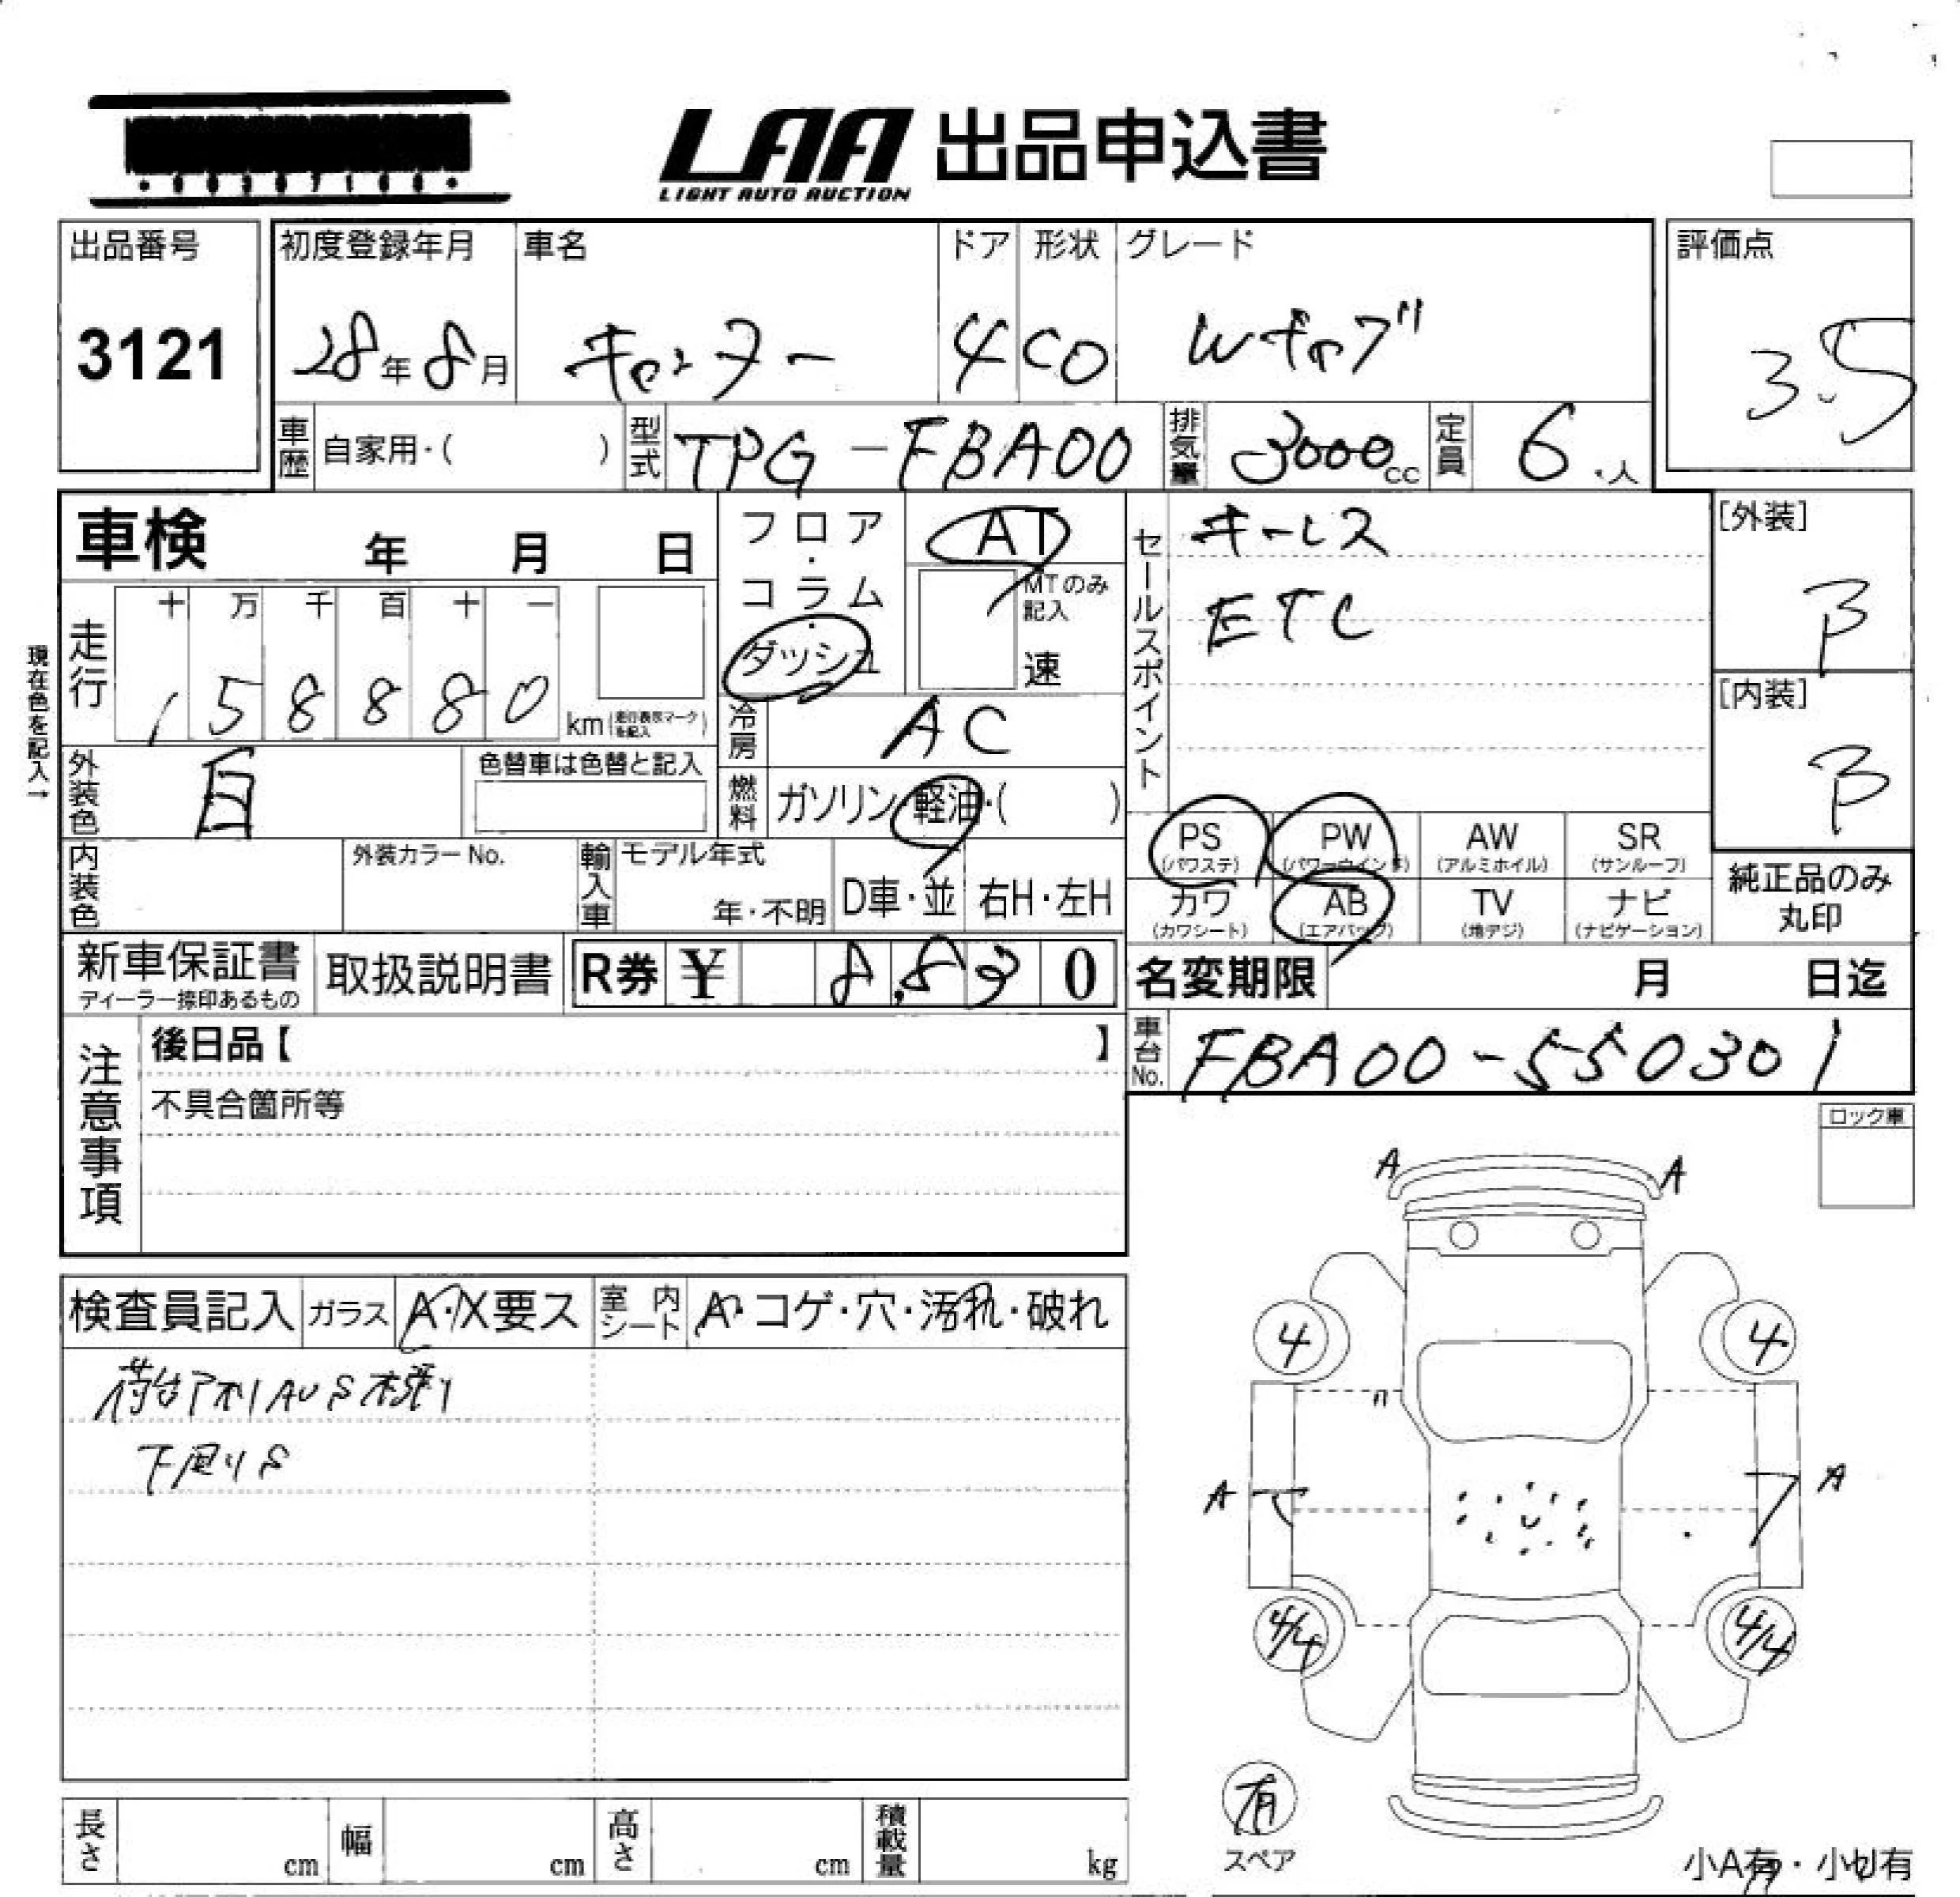 LAA 出品申込書
LIGHT AUTO AUCTION
出品番号 初度登録年月 車名 ドア 形状 グレード 評価点
3121 28年8月 キャンター 4 CO Wキャブ 3.5
車歴 自家用・( ) 型式 TPG-FBA00 排気量 3000cc 定員 6人
車検 年 月 日
フロア・コラム・ダッシュ
AT
MTのみ記入
速
セールスポイント
キーレス
ETC
[外装]
B
[内装]
B
現在色を記入→
走行 十 万 千 百 十 一
158880 km (走行表示マークを記入)
冷房 AC
外装色 白 色替車は色替と記入
燃料 ガソリン・軽油・( )
PS (パワステ) PW (パワーウインド) AW (アルミホイル) SR (サンルーフ)
カワ (カワシート) AB (エアバッグ) TV (地デジ) ナビ (ナビゲーション)
純正品のみ丸印
内装色 外装カラーNo. 輸入車 モデル年式 年・不明 D車・並 右H・左H
新車保証書 取扱説明書 R券 ¥ 8,830
ディーラー捺印あるもの
名変期限 月 日迄
注意事項
後日品【 】
車台No. FBA00-550301
不具合箇所等
ロック車
A A
検査員記入 ガラス A・X要ス 室内シート A・コゲ・穴・汚れ・破れ
4 4
荷台アオリAUS木張り
下回りS
A A
4/4 4/4
有
スペア
長さ cm 幅 cm 高さ cm 積載量 kg
小A有・小U有